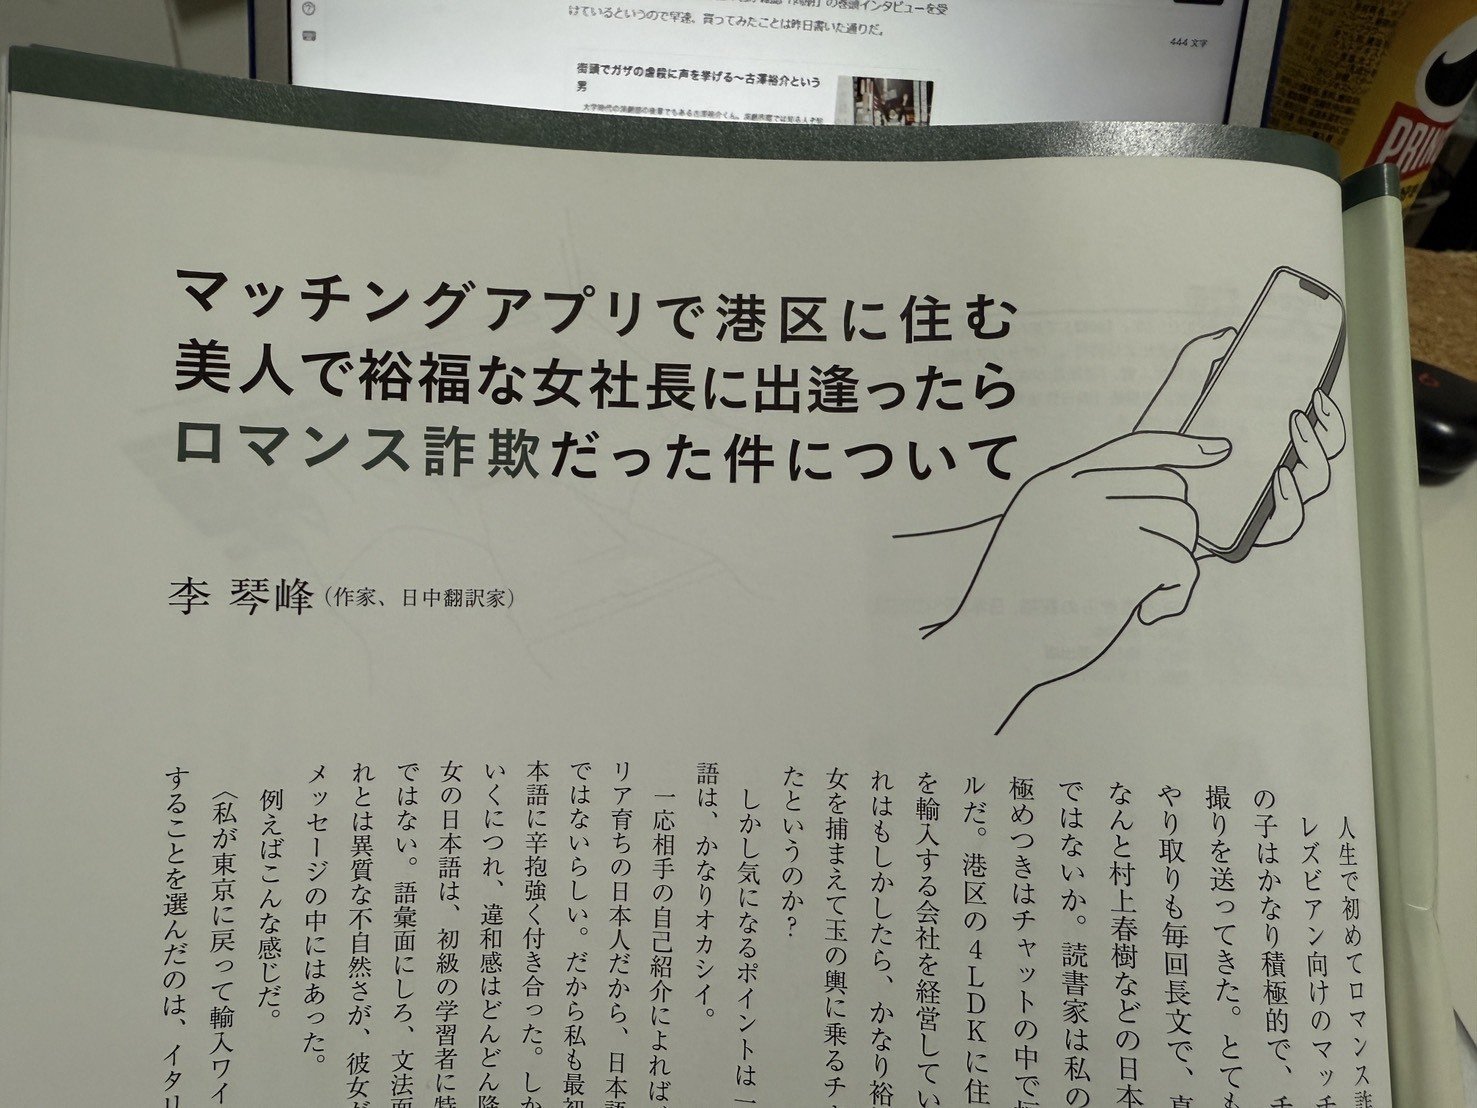 けているというので早速、買ってみたことは昨日書いた通りだ。
444 文字
街頭でガザの虐殺に声を挙げる〜古澤裕介という
男
PRIN
マッチングアプリで港区に住む
美人で裕福な女社長に出逢ったら
ロマンス詐欺だった件について
李 琴峰（作家、日中翻訳家）
人生で初めてロマンス詐
レズビアン向けのマッチ
の子はかなり積極的で、チ
撮りを送ってきた。とても
やり取りも毎回長文で、真
なんと村上春樹などの日本
ではないか。読書家は私の
極めつきはチャットの中で
ルだ。港区の4LDKに住
を輸入する会社を経営してい
れはもしかしたら、かなり裕
女を捕まえて玉の輿に乗るチ
たというのか？
しかし気になるポイントは一
語は、かなりオカシイ。
一応相手の自己紹介によれば
リア育ちの日本人だから、日本語
ではないらしい。だから私も最初
本語に辛抱強く付き合った。しか
いくにつれ、違和感はどんどん降
女の日本語は、初級の学習者に特
ではない。語彙面にしろ、文法面
れとは異質な不自然さが、彼女が
メッセージの中にはあった。
例えばこんな感じだ。
〈私が東京に戻って輸入ワイ
することを選んだのは、イタリ